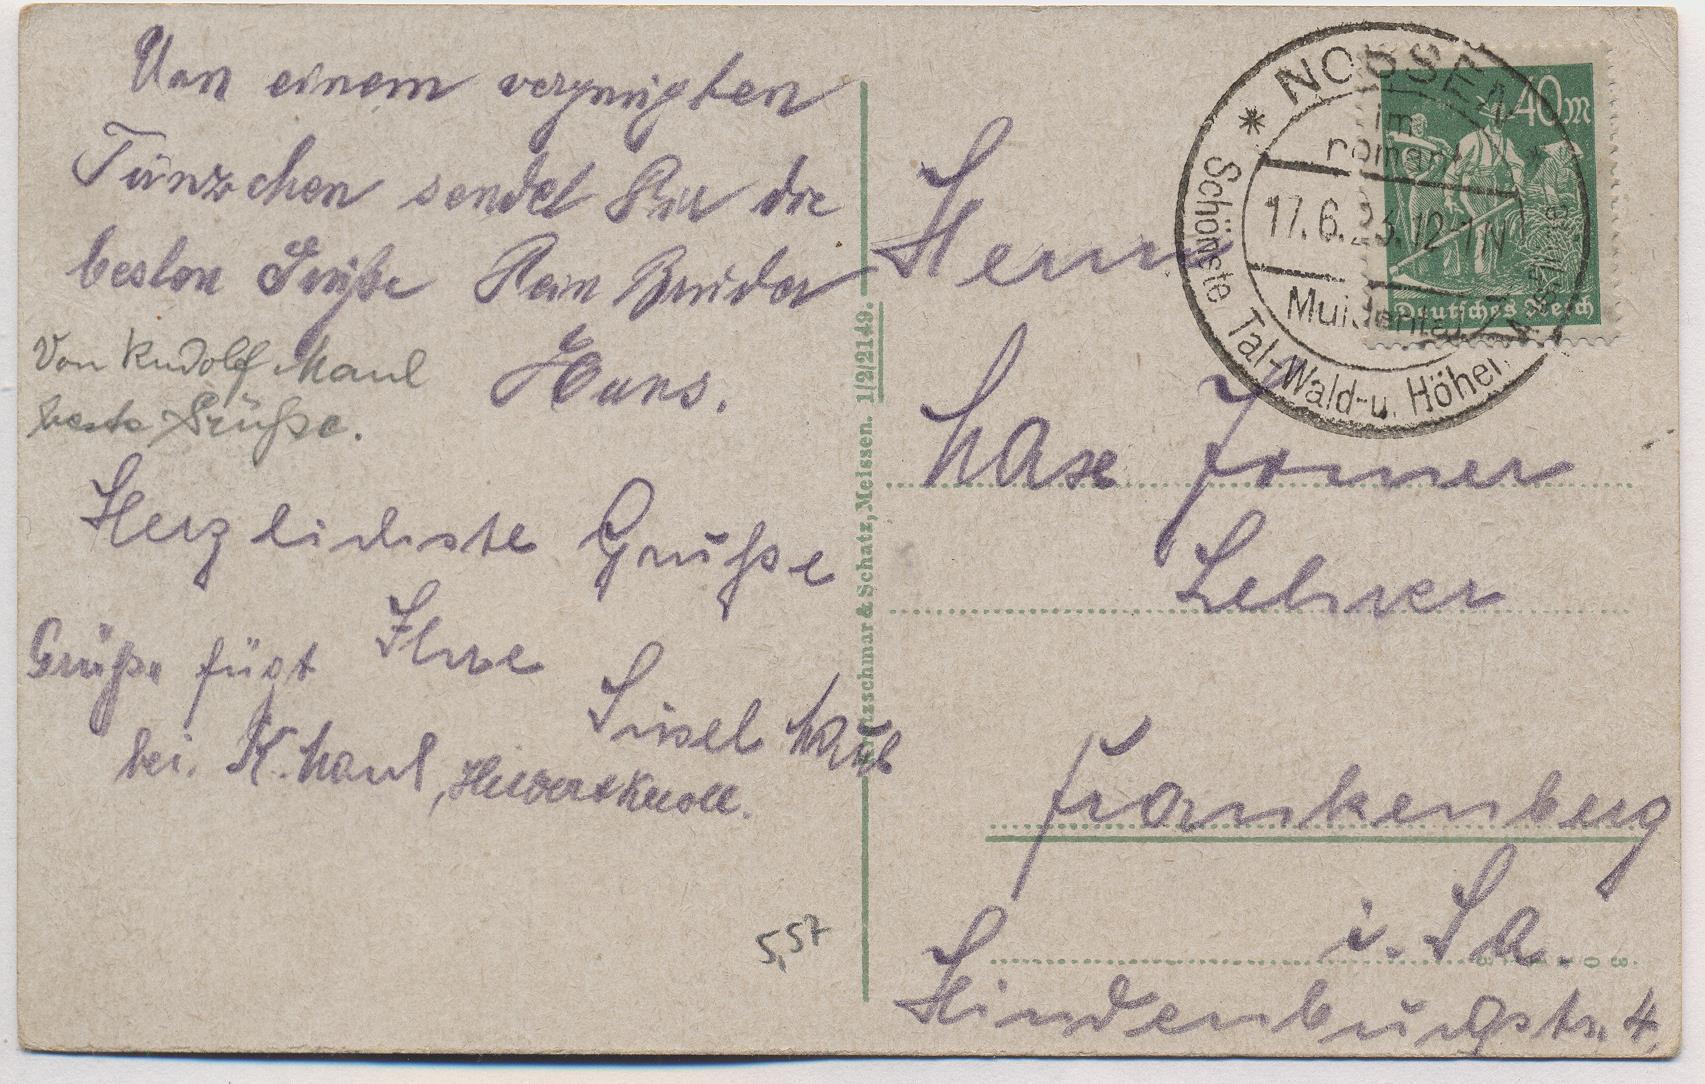 Von einem vergnügten
Tänzchen sendet Dir die
besten Grüße Dein Bruder
Hans.
Von Rudolf Maul
beste Grüße.
Herzlichste Grüße
Ihre
Grüße fügt
bei. K. Maul,
5,57
Kretzschmar & Schatz, Meissen. 1/2/2149.
NOSSEN
im
roman
17.6.23.12-1N
Muldental
Schönste Tal-Wald-u. Höhen
40M
Deutsches Reich
Herrn
Max
Lehrer
Frankenberg
i. Sa.
Hindenburgstr. 4.